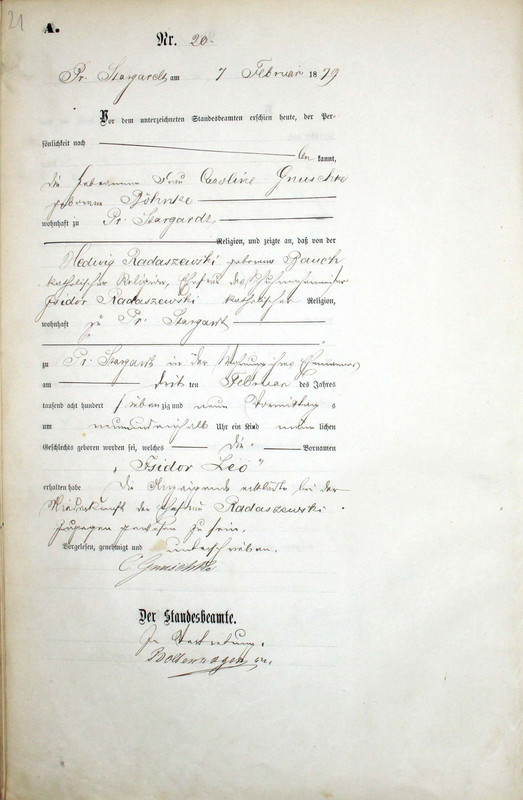 21
A.
Nr. 20.
Pr. Stargardt am 7 Februar 1879
Vor dem unterzeichneten Standesbeamten erschien heute, der Per-
sönlichkeit nach
be kannt,
die Hebamme Frau Caroline Gnuschke
geborene Böhnke
wohnhaft zu Pr. Stargardt
Religion, und zeigte an, daß von der
Hedwig Radaszewski geborene Bauch
katholischer Religion, Ehefrau des
Isidor Radaszewski katholischer Religion,
wohnhaft zu Pr. Stargardt
zu Pr. Stargardt in der Wohnung ihres Ehemannes
am dritten Februar des Jahres
tausend acht hundert siebenzig und neun Vormittags
um neun und einhalb Uhr ein Kind männlichen
Geschlechts geboren worden sei, welches die Vornamen
„Isidor Leo“
erhalten habe. Die Anzeigende erklärte bei der
Niederkunft der Ehefrau Radaszewski
zugegen gewesen zu sein.
Vorgelesen, genehmigt und unterschrieben.
C Gnuschke
Der Standesbeamte.
In Vertretung.